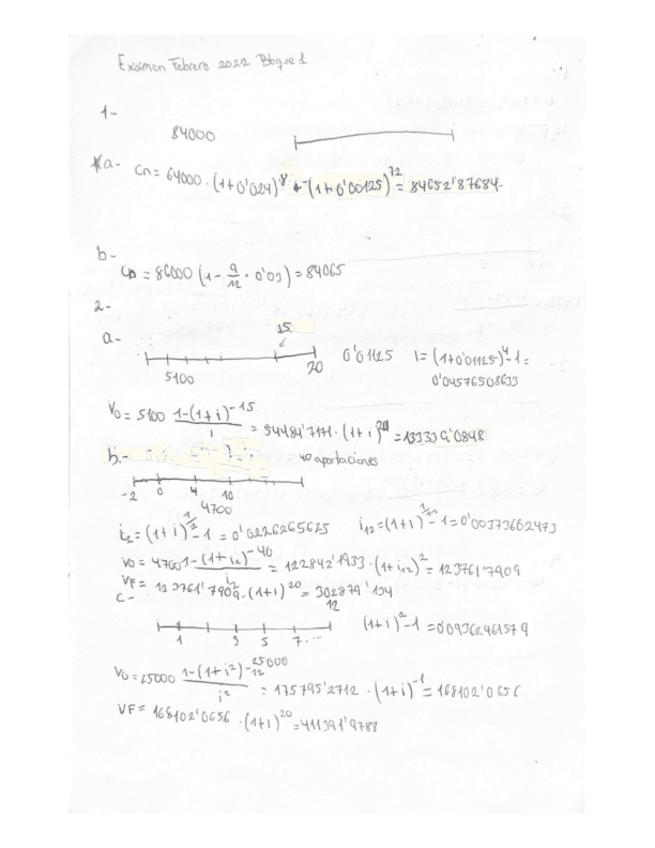 Exámen Febrero 2022 Bloque 1
1-
84000
a- Cn = 64000 · (1+0'024)^8 + (1+0'00125)^72 = 84652'87684-
b-
Cn = 86000 (1 - 9/12 · 0'03) = 84065
2-
a-
15
5100
20
0'01125 i = (1+0'01125)^4 - 1 =
0'04576508633
V0 = 5100 (1-(1+i)^-15)/i = 54484'7171 · (1+i)^20 = 133339'0848
b.-
40 aportaciones
-2 0 4 10
4700
i2 = (1+i)^1/2 - 1 = 0'0226265625 i12 = (1+i)^1/12 - 1 = 0'00373602473
V0 = 4700 (1-(1+i2)^-40)/i2 = 122842'1933 · (1+i12)^2 = 123761'7909
VF = 123761'7909 · (1+i)^20 = 302879'134
c-
12
1 3 5 7...
(1+i)^2 - 1 = 0'09362461579
V0 = 25000 (1-(1+i^2)^-12)/i^2 = 175795'2712 · (1+i)^-1 = 168102'0656
VF = 168102'0656 · (1+i)^20 = 411391'9788